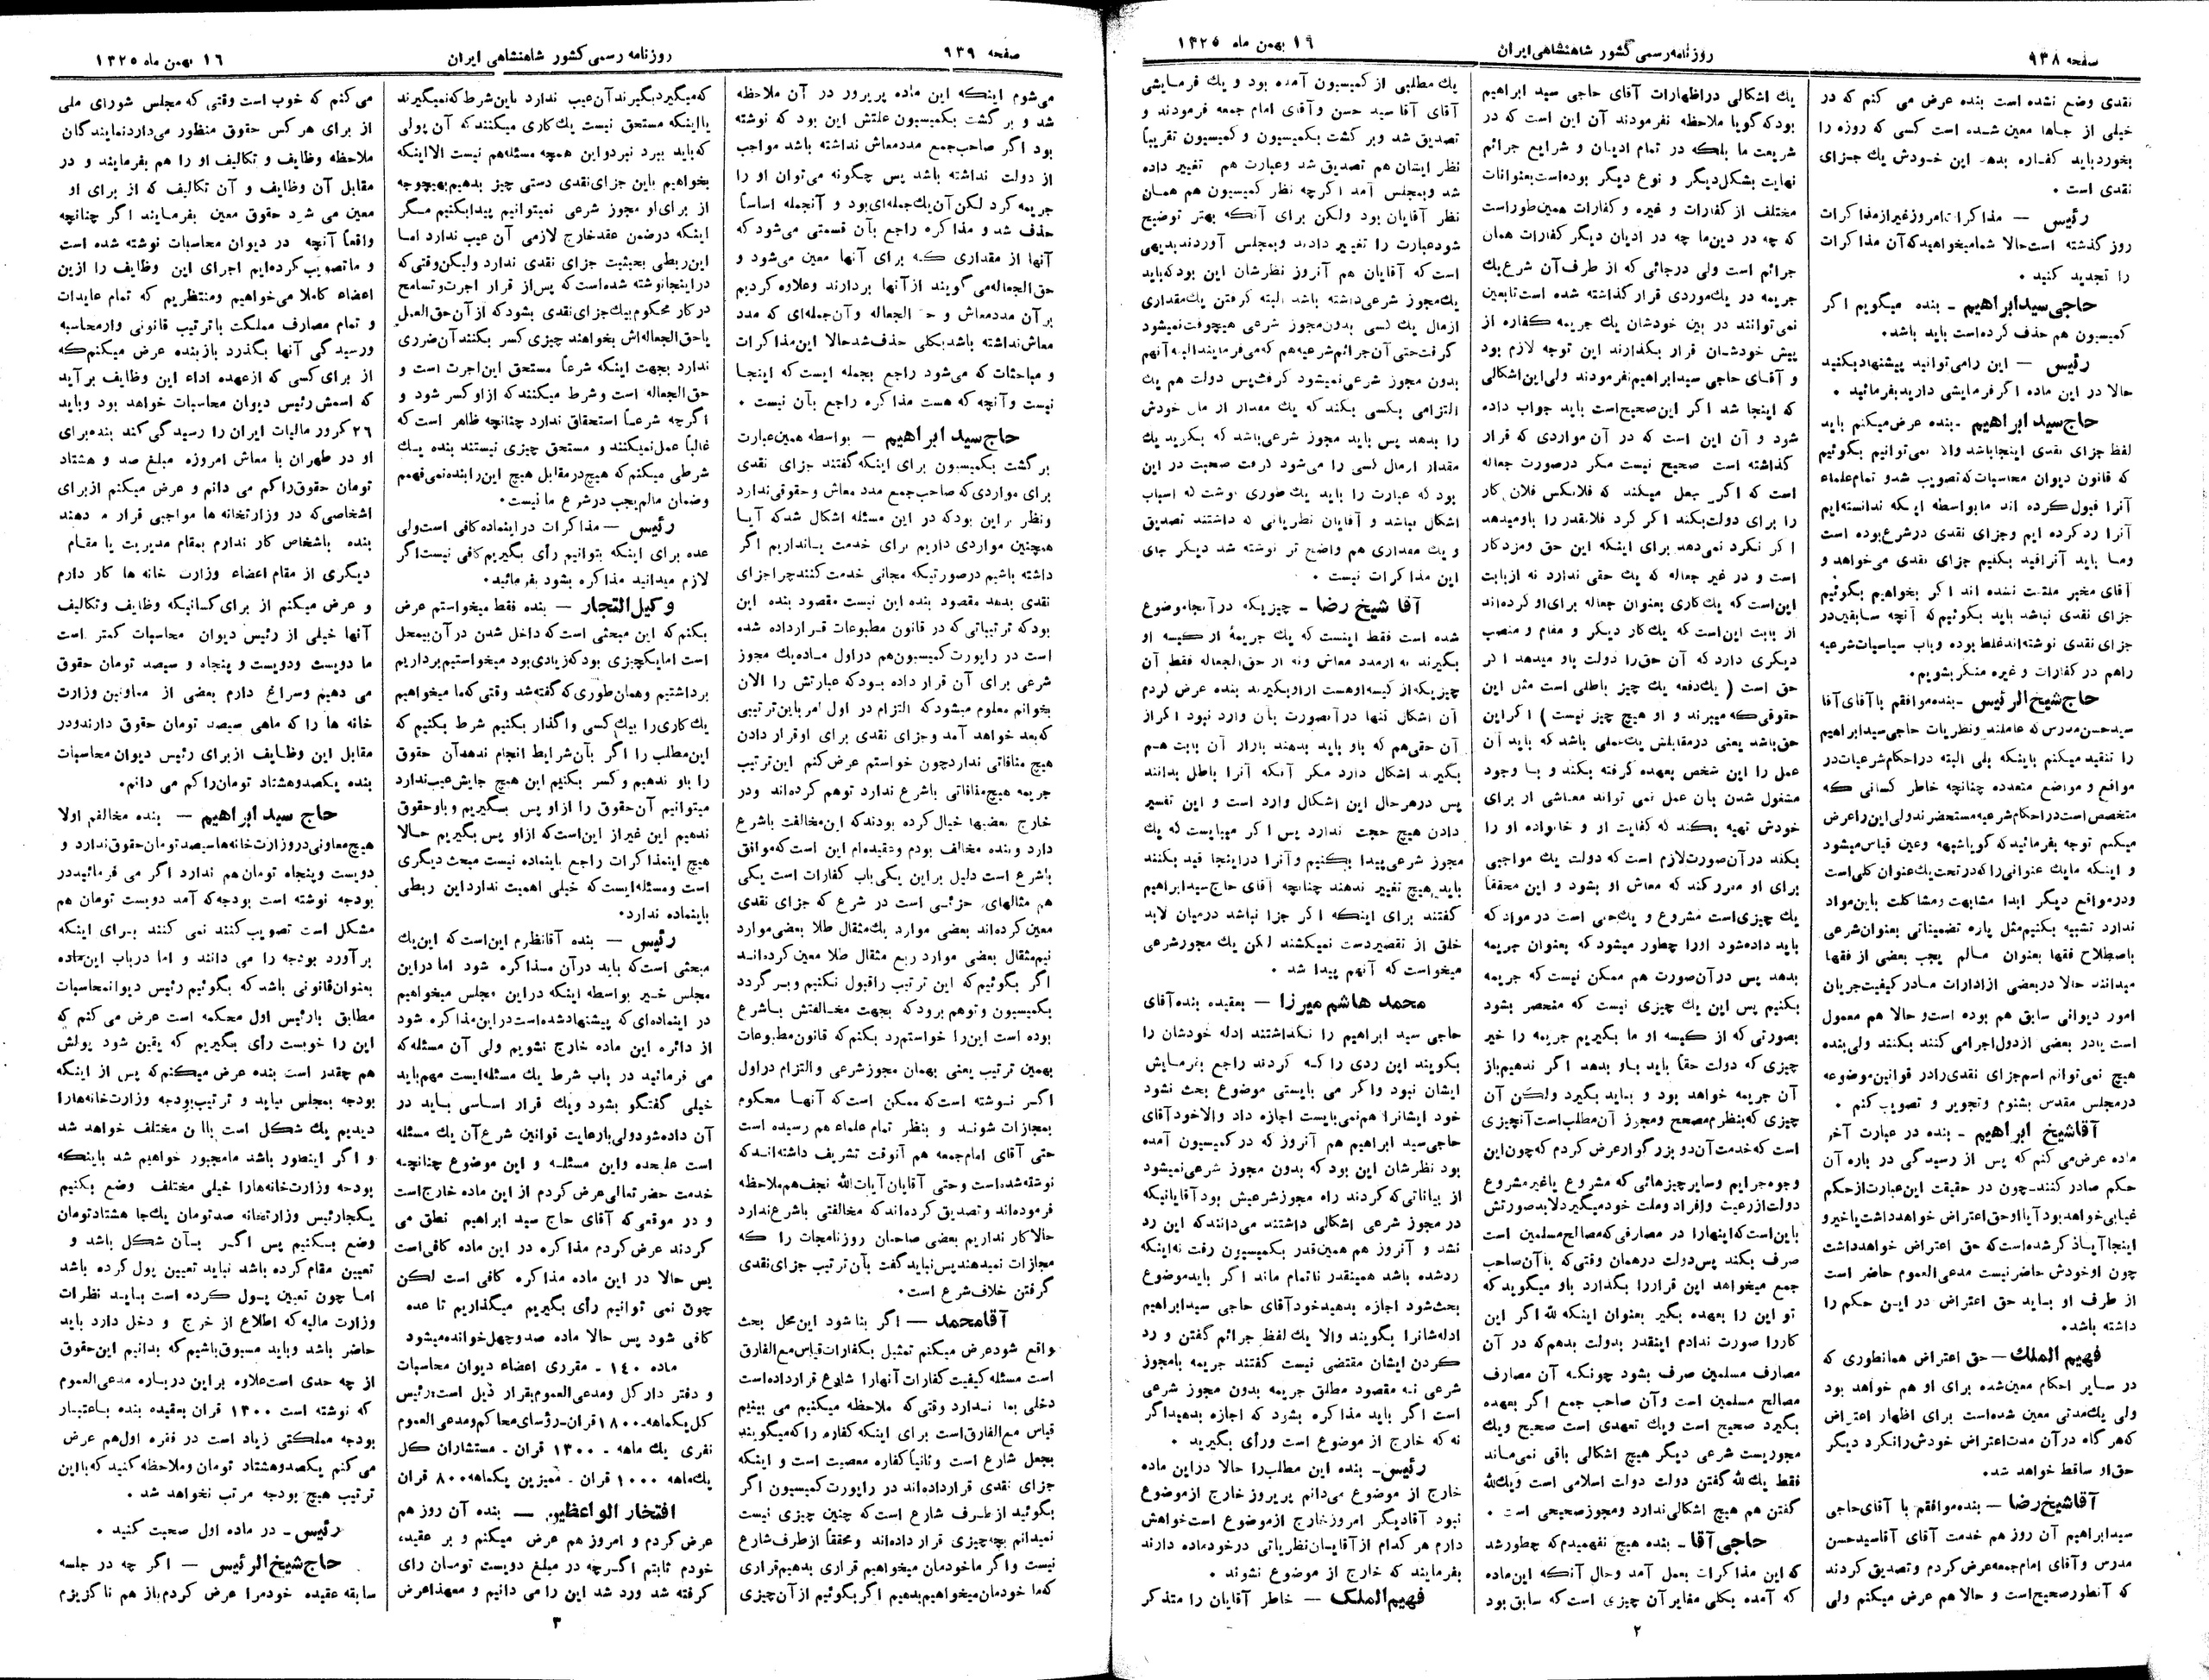 صفحه ۹۳۸
روزنامه رسمی کشور شاهنشاهی ایران
۱۶ بهمن ماه ۱۳۲۵
نقدی وضع نشده است بنده عرض می کنم که در
خیلی از جاها معین شده است کسی که روزه را
بخورد باید کفاره بدهد این خودش یك جزای
نقدی است .
رئیس — مذاکرات امروز غیر از مذاکرات
روز گذشته است حالا شما میخواهید که آن مذاکرات
را تجدید کنید .
حاجی سید ابراهیم ـ بنده میگویم اگر
کمیسیون هم حذف کرده است باید باشد.
رئیس — این را می توانید پیشنهاد بکنید
حالا در این ماده اگر فرمایشی دارید بفرمائید .
حاج سید ابراهیم ـ بنده عرض میکنم باید
لفظ جزای نقدی اینجا باشد والا نمی توانیم بگوئیم
که قانون دیوان محاسبات که تصویب شد و تمام علماء
آنرا قبول کرده اند ما بواسطه اینکه ندانسته ایم
آنرا رد کرده ایم و جزای نقدی در شرع بوده است
وما باید آنرا قید بکنیم جزای نقدی می خواهد و
آقای مخبر ملتفت نشده اند اگر بخواهیم بگوئیم
جزای نقدی نباشد باید بگوئیم که آنچه سابقین در
جزای نقدی نوشته اند غلط بوده و باب سیاسیات شرعیه
راهم در کفارات و غیره منکر بشویم.
حاج شیخ الرئیس ـ بنده موافقم با آقای آقا
سید حسن مدرس که عاملند و نظریات حاجی سید ابراهیم
را تنقید میکنم باینکه بلی البته در احکام شرعیات در
مواقع و مواضع متعدده چنانچه خاطر کسانی که
متخصص است در احکام شرعیه مستحضرند ولی این را عرض
میکنم توجه بفرمائید که گویا شبهه وعین قیاس میشود
و اینکه ما یك عنوانی را که در تحت یك عنوان کلی است
ودر مواقع دیگر ابدا مشابهت و مشاکلت باین مواد
ندارد تشبیه بکنیم مثل پاره تضمیناتی بعنوان شرعی
باصطلاح فقها بعنوان مالم یجب بعضی از فقها
میدانند حالا در بعضی از ادارات ما در کیفیت جریان
امور دیوانی سابق هم بوده است و حالا هم معمول
است یا در بعضی از دول اجرا می کنند بکنند ولی بنده
هیچ نمی توانم اسم جزای نقدی را در قوانین موضوعه
در مجلس مقدس بشنوم و تجویز و تصویب کنم .
آقا شیخ ابراهیم ـ بنده در عبارت آخر
ماده عرض می کنم که پس از رسیدگی در باره آن
حکم صادر کنند ـ چون در حقیقت این عبارت از حکم
غیابی خواهد بود آیا او حق اعتراض خواهد داشت یا خیر و
اینجا آیا ذکر شده است که حق اعتراض خواهد داشت
چون او خودش حاضر نیست مدعی العموم حاضر است
از طرف او باید حق اعتراض در این حکم را
داشته باشد.
فهیم الملك — حق اعتراض همانطوری که
در سایر احکام معین شده برای او هم خواهد بود
ولی یك مدتی معین شده است برای اظهار اعتراض
که هر گاه در آن مدت اعتراض خودش را نکرد دیگر
حق او ساقط خواهد شد.
آقا شیخ رضا — بنده موافقم با آقای حاجی
سید ابراهیم آن روز هم خدمت آقای آقا سید حسن
مدرس و آقای امام جمعه عرض کردم و تصدیق کردند
که آنطور صحیح است و حالا هم عرض میکنم ولی
یك اشکالی در اظهارات آقای حاجی سید ابراهیم
بود که گویا ملاحظه نفرمودند آن این است که در
شریعت ما بلکه در تمام ادیان و شرایع جرائم
نهایت بشکل دیگر و نوع دیگر بوده است بعنوانات
مختلف از کفارات و غیره و کفارات همین طور است
که چه در دین ما چه در ادیان دیگر کفارات همان
جرائم است ولی در جائی که از طرف آن شرع یك
جریمه در یك موردی قرار گذاشته شده است تابعین
نمی توانند در بین خودشان یك جریمه کفاره از
پیش خودشان قرار بگذارند این توجه لازم بود
و آقای حاجی سید ابراهیم نفرمودند ولی این اشکالی
که اینجا شد اگر این صحیح است باید جواب داده
شود و آن این است که در آن مواردی که قرار
گذاشته است صحیح نیست مگر در صورت جعاله
است که اگر جعل میکند که فلانکس فلان کار
را برای دولت بکند اگر کرد فلانقدر را باو میدهد
اگر نکرد نمی دهد برای اینکه این حق و مزد کار
است و در غیر جعاله که یك حقی ندارد نه از بابت
این است که یك کاری بعنوان جعاله برای او کرده اند
از بابت این است که یك کار دیگر و مقام و منصب
دیگری دارد که آن حق را دولت باو میدهد اگر
حق است ( یك دفعه یك چیز باطلی است مثل این
حقوقی که میبرند و او هیچ چیز نیست ) اگر این
حق باشد یعنی در مقابلش یك عملی باشد که باید آن
عمل را این شخص بعهده گرفته بکند و با وجود
مشغول شدن بان عمل نمی تواند معاشی از برای
خودش تهیه بکند که کفایت او و خانواده او را
بکند در آن صورت لازم است که دولت یك مواجبی
برای او مقرر کند که معاش او بشود و این محققا
یك چیزی است مشروع و یك حقی است در مواد که
باید داده شود اورا چطور میشود که بعنوان جریمه
بدهد پس در آن صورت هم ممکن نیست که جریمه
بکنیم پس این یك چیزی نیست که منحصر بشود
بصورتی که از کیسه او ما بگیریم جریمه را خیر
چیزی که دولت حقاً باید باو بدهد اگر ندهیم باز
آن جریمه خواهد بود و نباید بگیرد ولکن آن
چیزی که بنظرم مصحح و مجوز آن مطلب است آنچیزی
است که خدمت آن دو بزرگوار عرض کردم که چون این
وجوه جرایم وسایر چیزهائی که مشروع یا غیر مشروع
دولت از رعیت و افراد و ملت خود میگیرد لابد صورتش
باین است که اینها را در مصارفی که مصالح مسلمین است
صرف بکند پس دولت در همان وقتی که با آن صاحب
جمع میخواهد این قرار را بگذارد باو میگوید که
تو این را بعهده بگیر بعنوان اینکه لله اگر این
کار را صورت ندادم اینقدر بدولت بدهم که در آن
مصارف مسلمین صرف بشود چونکه آن مصارف
مصالح مسلمین است و آن صاحب جمع اگر بعهده
بگیرد صحیح است ویك تعهدی است صحیح ویك
مجوزیست شرعی دیگر هیچ اشکالی باقی نمی ماند
فقط یك لله گفتن دولت دولت اسلامی است ویك لله
گفتن هم هیچ اشکالی ندارد و مجوز صحیحی است .
حاجی آقا ـ بنده هیچ نفهمیدم که چطور شد
که این مذاکرات بعمل آمد و حال آنکه این ماده
که آمده بکلی مغایر آن چیزی است که سابق بود
یك مطلبی از کمیسیون آمده بود و یك فرمایشی
آقای آقا سید حسن و آقای امام جمعه فرمودند و
تصدیق شد و بر گشت بکمیسیون و کمیسیون تقریباً
نظر ایشان هم تصدیق شد و عبارت هم تغییر داده
شد و بمجلس آمد اگر چه نظر کمیسیون هم همان
نظر آقایان بود ولکن برای آنکه بهتر توضیح
شود عبارت را تغییر دادند و بمجلس آوردند بدیهی
است که آقایان هم آنروز نظرشان این بود که باید
یك مجوز شرعی داشته باشد البته گرفتن یك مقداری
از مال یك کسی بدون مجوز شرعی هیچوقت نمیشود
گرفت حتی آن جرائم شرعیه هم که می فرمایند البته آنهم
بدون مجوز شرعی نمیشود گرفت پس دولت هم یك
التزامی بکسی بکند که یك مقدار از مال خودش
را بدهد پس باید مجوز شرعی باشد که بگرید یك
مقدار از مال کسی را می شود گرفت صحبت در این
بود که عبارت را باید یك طوری نوشت که اسباب
اشکال نباشد و آقایان نظریاتی که داشتند تصدیق
و یك مقداری هم واضح تر نوشته شد دیگر جای
این مذاکرات نیست .
آقا شیخ رضا ـ چیزیکه در آنجا موضوع
شده است فقط اینست که یك جریمهٔ از کیسه او
بگیرند نه از مدد معاش ونه از حق الجعاله فقط آن
چیزیکه از کیسه اوهست از او بگیرند بنده عرض کردم
آن اشکال تنها در آنصورت بآن وارد نبود اگر از
آن حقی هم که باو باید بدهند باز از آن بابت هم
بگیرند اشکال دارد مگر آنکه آنرا باطل بدانند
پس در هر حال این اشکال وارد است و این تفسیر
دادن هیچ حجت ندارد پس اگر میبایست که یك
مجوز شرعی پیدا بکنیم و آنرا در اینجا قید بکنند
باید هیچ تغییر ندهند چنانچه آقای حاج سید ابراهیم
گفتند برای اینکه اگر جزا نباشد در میان لابد
خلق از تقصیر دست نمیکشند لکن یك مجوز شرعی
میخواست که آنهم پیدا شد .
محمد هاشم میرزا — بعقیده بنده آقای
حاجی سید ابراهیم را نگذاشتند ادله خودشان را
بگویند این ردی را که کردند راجع بفرمایش
ایشان نبود واگر می بایستی موضوع بحث نشود
خود ایشانرا هم نمی بایست اجازه داد والا خود آقای
حاجی سید ابراهیم هم آنروز که در کمیسیون آمده
بود نظرشان این بود که بدون مجوز شرعی نمیشود
از بیاناتی که کردند راه مجوز شرعیش بود آقایانیکه
در مجوز شرعی اشکالی داشتند می دانند که این رد
نشد و آنروز هم همین قدر بکمیسیون رفت نه اینکه
رد شده باشد همینقدر ناتمام ماند اگر باید موضوع
بحث شود اجازه بدهید خود آقای حاجی سید ابراهیم
ادله شانرا بگویند والا یك لفظ جرائم گفتن و رد
کردن ایشان مقتضی نیست گفتند جریمه با مجوز
شرعی نه مقصود مطلق جریمه بدون مجوز شرعی
است اگر باید مذاکره بشود که اجازه بدهید اگر
نه که خارج از موضوع است و رأی بگیرید .
رئیس ـ بنده این مطلب را حالا در این ماده
خارج از موضوع می دانم پریروز خارج از موضوع
نبود آقا دیگر امروز خارج از موضوع است خواهش
دارم هر کدام از آقایان نظریاتی در خود ماده دارند
بفرمایند که خارج از موضوع نشوند .
فهیم الملك — خاطر آقایان را متذکر
۲
صفحه ۹۳۹
روزنامه رسمی کشور شاهنشاهی ایران
۱۶ بهمن ماه ۱۳۲۵
می شوم اینکه این ماده پریروز در آن ملاحظه
شد و بر گشت بکمیسیون علتش این بود که نوشته
بود اگر صاحب جمع مدد معاش نداشته باشد مواجب
از دولت نداشته باشد پس چگونه می توان او را
جریمه کرد لکن آن یك جمله ای بود و آنجمله اساساً
حذف شد و مذاکره راجع بآن قسمتی می شود که
آنها از مقداری که برای آنها معین می شود و
حق الجعاله می گویند از آنها بردارند و علاوه کردیم
بر آن مدد معاش و حق الجعاله و آن جمله ای که مدد
معاش نداشته باشد بکلی حذف شد حالا این مذاکرات
و مباحثات که می شود راجع بجمله ایست که اینجا
نیست و آنچه که هست مذاکره راجع بآن نیست .
حاج سید ابراهیم — بواسطه همین عبارت
بر گشت بکمیسیون برای اینکه گفتند جزای نقدی
برای مواردی که صاحب جمع مدد معاش و حقوقی ندارد
ونظر براین بود که در این مسئله اشکال شد که آیا
همچنین مواردی داریم برای خدمت یا نداریم اگر
داشته باشیم در صورتیکه مجانی خدمت کنند چرا جزای
نقدی بدهد مقصود بنده این نیست مقصود بنده این
بود که ترتیباتی که در قانون مطبوعات قرار داده شده
است در راپورت کمیسیون هم در اول ماده یك مجوز
شرعی برای آن قرار داده بود که عبارتش را الان
بخوانم معلوم میشود که التزام در اول امر باین ترتیبی
که بعد خواهد آمد و جزای نقدی برای او قرار دادن
هیچ منافاتی ندارد چون خواستم عرض کنم این ترتیب
جریمه هیچ منافاتی باشرع ندارد توهم کرده اند و در
خارج بعضیها خیال کرده بودند که این مخالفت باشرع
دارد و بنده مخالف بودم و عقیده ام این است که موافق
باشرع است دلیل بر این یکی باب کفارات است یکی
هم مثالهای جزئی است در شرع که جزای نقدی
معین کرده اند بعضی موارد یك مثقال طلا بعضی موارد
نیم مثقال بعضی موارد ربع مثقال طلا معین کرده اند
اگر بگوئیم که این ترتیب را قبول نکنیم و بر گردد
بکمیسیون و توهم برود که بجهت مخالفتش باشرع
بوده است این را خواستم رد بکنم که قانون مطبوعات
بهمین ترتیب یعنی بهمان مجوز شرعی و التزام در اول
اگر نوشته است که ممکن است که آنها محکوم
بمجازات شوند و بنظر تمام علماء هم رسیده است
حتی آقای امام جمعه هم آنوقت تشریف داشته اند که
نوشته شده است و حتی آقایان آیات الله نجف هم ملاحظه
فرموده اند و تصدیق کرده اند که مخالفتی باشرع ندارد
حالا کار نداریم بعضی صاحبان روزنامجات را که
مجازات نمیدهند پس نباید گفت بآن ترتیب جزای نقدی
گرفتن خلاف شرع است.
آقا محمد — اگر بنا شود این محل بحث
واقع شود عرض میکنم تمثیل بکفارات قیاس مع الفارق
است مسئله کیفیت کفارات آنها را شارع قرار داده است
دخلی بما ندارد وقتی که ملاحظه میکنیم می بینیم
قیاس مع الفارق است برای اینکه کفاره را که میگویند
بجعل شارع است و ثانیاً کفاره معصیت است و اینکه
جزای نقدی قرار داده اند در راپورت کمیسیون اگر
بگوئید از طرف شارع است که چنین چیزی نیست
نمیدانم بچه چیزی قرار داده اند و محققاً از طرف شارع
نیست و اگر ما خودمان میخواهیم قراری بدهیم قراری
که ما خودمان میخواهیم بدهیم اگر بگوئیم از آن چیزی
که میگیرد بگیرند آن عیب ندارد باین شرط که نمیگیرند
یا اینکه مستحق نیست یك کاری میکنند که آن پولی
که باید ببرد نبرد و این همچه مسئله هم نیست الا اینکه
بخواهیم باین جزای نقدی دستی چیز بدهیم بهیچوجه
از برای او مجوز شرعی نمیتوانیم پیدا بکنیم مگر
اینکه در ضمن عقد خارج لازمی آن عیب ندارد اما
این ربطی بحیثیت جزای نقدی ندارد ولیکن وقتی که
در اینجا نوشته شده است که پس از قرار اجرت و تسامح
در کار محکوم بیك جزای نقدی بشود که از آن حق العمل
یا حق الجعاله اش بخواهند چیزی کسر بکنند آن ضرری
ندارد بجهت اینکه شرعاً مستحق این اجرت است و
حق الجعاله است و شرط میکنند که از او کسر شود و
اگرچه شرعاً استحقاق ندارد چنانچه ظاهر است که
غالباً عمل نمیکنند و مستحق چیزی نیستند بنده یك
شرطی میکنم که هیچ در مقابل هیچ این را بنده نمی فهمم
وضمان مالم یجب در شرع ما نیست.
رئیس — مذاکرات در اینماده کافی است ولی
عده برای اینکه بتوانیم رأی بگیریم کافی نیست اگر
لازم میدانید مذاکره بشود بفرمائید.
وکیل التجار — بنده فقط میخواستم عرض
بکنم که این مبحثی است که داخل شدن در آن بیمحل
است اما یکچیزی بود که زیادی بود میخواستیم برداریم
برداشتیم و همان طوری که گفته شد وقتی که ما میخواهیم
یك کاری را بیك کسی واگذار بکنیم شرط بکنیم که
این مطلب را اگر بآن شرایط انجام ندهد آن حقوق
را باو ندهیم و کسر بکنیم این هیچ جایش عیب ندارد
میتوانیم آن حقوق را از او پس بگیریم و باو حقوق
ندهیم این غیر از این است که از او پس بگیریم حالا
هیچ اینمذاکرات راجع باینماده نیست مبحث دیگری
است و مسئله ایست که خیلی اهمیت ندارد این ربطی
باینماده ندارد.
رئیس — بنده آقا نظرم این است که این یك
مبحثی است که باید در آن مذاکره شود اما در این
مجلس خیر بواسطه اینکه در این مجلس میخواهیم
در اینماده ای که پیشنهاد شده است در این مذاکره شود
از دائره این ماده خارج نشویم ولی آن مسئله که
می فرمائید در باب شرط یك مسئله ایست مهم باید
خیلی گفتگو بشود ویك قرار اساسی باید در
آن داده شود ولی بارعایت قوانین شرع آن یك مسئله
است علیحده و این مسئله و این موضوع چنانچه
خدمت حضرتعالی عرض کردم از این ماده خارج است
و در موقعی که آقای حاج سید ابراهیم نطق می
کردند عرض کردم مذاکره در این ماده کافی است
پس حالا در این ماده مذاکره کافی است لکن
چون نمی توانیم رأی بگیریم میگذاریم تا عده
کافی شود پس حالا ماده صد و چهل خوانده میشود
ماده ۱۴۰ ـ مقرری اعضاء دیوان محاسبات
و دفتر دار کل و مدعی العموم بقرار ذیل است: رئیس
کل یکماهه ۱۸۰۰ قران ـ رؤسای محاکم و مدعی العموم
نفری یك ماهه ۱۳۰۰ قران ـ مستشاران کل
یك ماهه ۱۰۰۰ قران ـ ممیزین یکماهه ۸۰۰ قران
افتخار الواعظین — بنده آن روز هم
عرض کردم و امروز هم عرض میکنم و بر عقیده
خودم ثابتم اگرچه در مبلغ دویست تومان رای
گرفته شد ورد شد این را می دانیم و معهذا عرض
می کنم که خوب است وقتی که مجلس شورای ملی
از برای هر کس حقوق منظور می دارد نمایندگان
ملاحظه وظایف و تکالیف او را هم بفرمایند و در
مقابل آن وظایف و آن تکالیف که از برای او
معین می شود حقوق معین بفرمایند اگر چنانچه
واقعاً آنچه در دیوان محاسبات نوشته شده است
و ما تصویب کرده ایم اجرای این وظایف را ازین
اعضاء کاملا می خواهیم و منتظریم که تمام عایدات
و تمام مصارف مملکت با ترتیب قانونی وارمحاسبه
ورسیدگی آنها بگذرد باز بنده عرض میکنم که
از برای کسی که از عهده اداء این وظایف بر آید
که اسمش رئیس دیوان محاسبات خواهد بود وباید
۲۶ کرور مالیات ایران را رسیدگی کند بنده برای
او در طهران با معاش امروزه مبلغ صد و هشتاد
تومان حقوق را کم می دانم و عرض میکنم از برای
اشخاصی که در وزارتخانه ها مواجبی قرار می دهند
بنده باشخاص کار ندارم بمقام مدیریت یا مقام
دیگری از مقام اعضاء وزارت خانه ها کار دارم
و عرض میکنم از برای کسانیکه وظایف و تکالیف
آنها خیلی از رئیس دیوان محاسبات کمتر است
ما دویست و دویست و پنجاه و سیصد تومان حقوق
می دهیم وسراغ دارم بعضی از معاونین وزارت
خانه ها را که ماهی سیصد تومان حقوق دارند و در
مقابل این وظایف از برای رئیس دیوان محاسبات
بنده یکصد و هشتاد تومان را کم می دانم.
حاج سید ابراهیم — بنده مخالفم اولا
هیچ معاونی در وزارت خانه ها سیصد تومان حقوق ندارد و
دویست و پنجاه تومان هم ندارد اگر می فرمائید در
بودجه نوشته است بودجه که آمد دویست تومان هم
مشکل است تصویب کنند نمی کنند برای اینکه
بر آورد بودجه را می دانند و اما در باب این ماده
بعنوان قانونی باشد که بگوئیم رئیس دیوانمحاسبات
مطابق بارئیس اول محکمه است عرض می کنم که
این را خوبست رأی بگیریم که یقین شود پولش
هم چقدر است بنده عرض میکنم که پس از اینکه
بودجه بمجلس بیاید و ترتیب بودجه وزارت خانه ها را
دیدیم یك شکل است یا آن مختلف خواهد شد
و اگر اینطور باشد ما مجبور خواهیم شد باینکه
بودجه وزارت خانه ها را خیلی مختلف وضع بکنیم
یکجا رئیس وزارتخانه صد تومان یك جا هشتاد تومان
وضع بکنیم پس اگر بآن شکل باشد و
تعیین مقام کرده باشد نباید تعیین پول کرده باشد
اما چون تعیین پول کرده است باید نظرات
وزارت مالیه که اطلاع از خرج و دخل دارد باید
حاضر باشد وباید مسبوق باشیم که بدانیم این حقوق
از چه حدی است علاوه بر این در باره مدعی العموم
که نوشته است ۱۳۰۰ قران بعقیده بنده باعتبار
بودجه مملکتی زیاد است در فقره اول هم عرض
می کنم یکصد و هشتاد تومان و ملاحظه کنید که با این
ترتیب هیچ بودجه مرتب نخواهد شد .
رئیس ـ در ماده اول صحبت کنید .
حاج شیخ الرئیس — اگر چه در جلسه
سابقه عقیده خودمرا عرض کردم باز هم ناگزیرم
۳